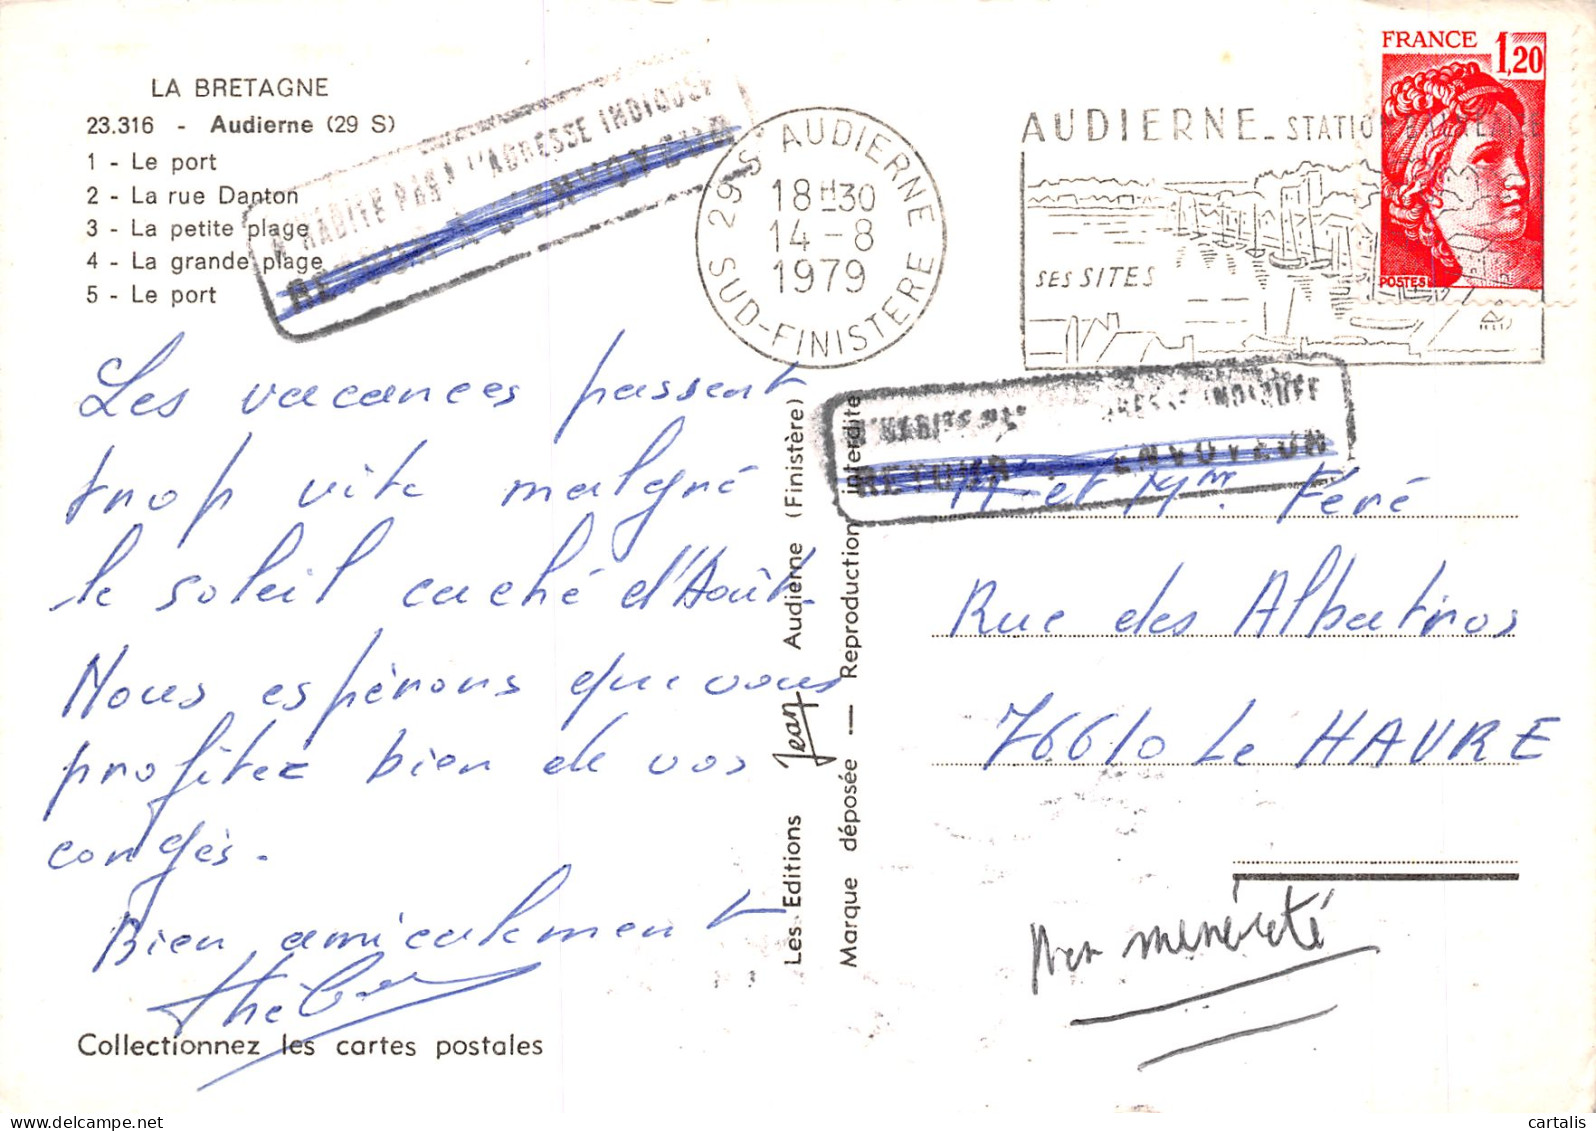 LA BRETAGNE
23.316 - Audierne (29 S)
1 - Le port
2 - La rue Danton
3 - La petite plage
4 - La grande plage
5 - Le port
N'HABITE PAS A L'ADRESSE INDIQUÉE
RETOUR A L'ENVOYEUR
29 S AUDIERNE
18H30
14-8
1979
SUD-FINISTERE
AUDIERNE - STATION BALNEAIRE
SES SITES
FRANCE 1,20
POSTES
N'HABITE PAS ADRESSE INDIQUÉE
RETOUR ENVOYEUR
Les vacances passent
trop vite malgré
le soleil caché d'Août.
Nous espérons que vous
profitez bien de vos
congés.
Bien amicalement
Collectionnez les cartes postales
Les Editions Jean Audierne (Finistère)
Marque déposée — Reproduction interdite
M et Mme. Feré
Rue des Albatros
76610 Le HAVRE
delcampe.net
cartalis